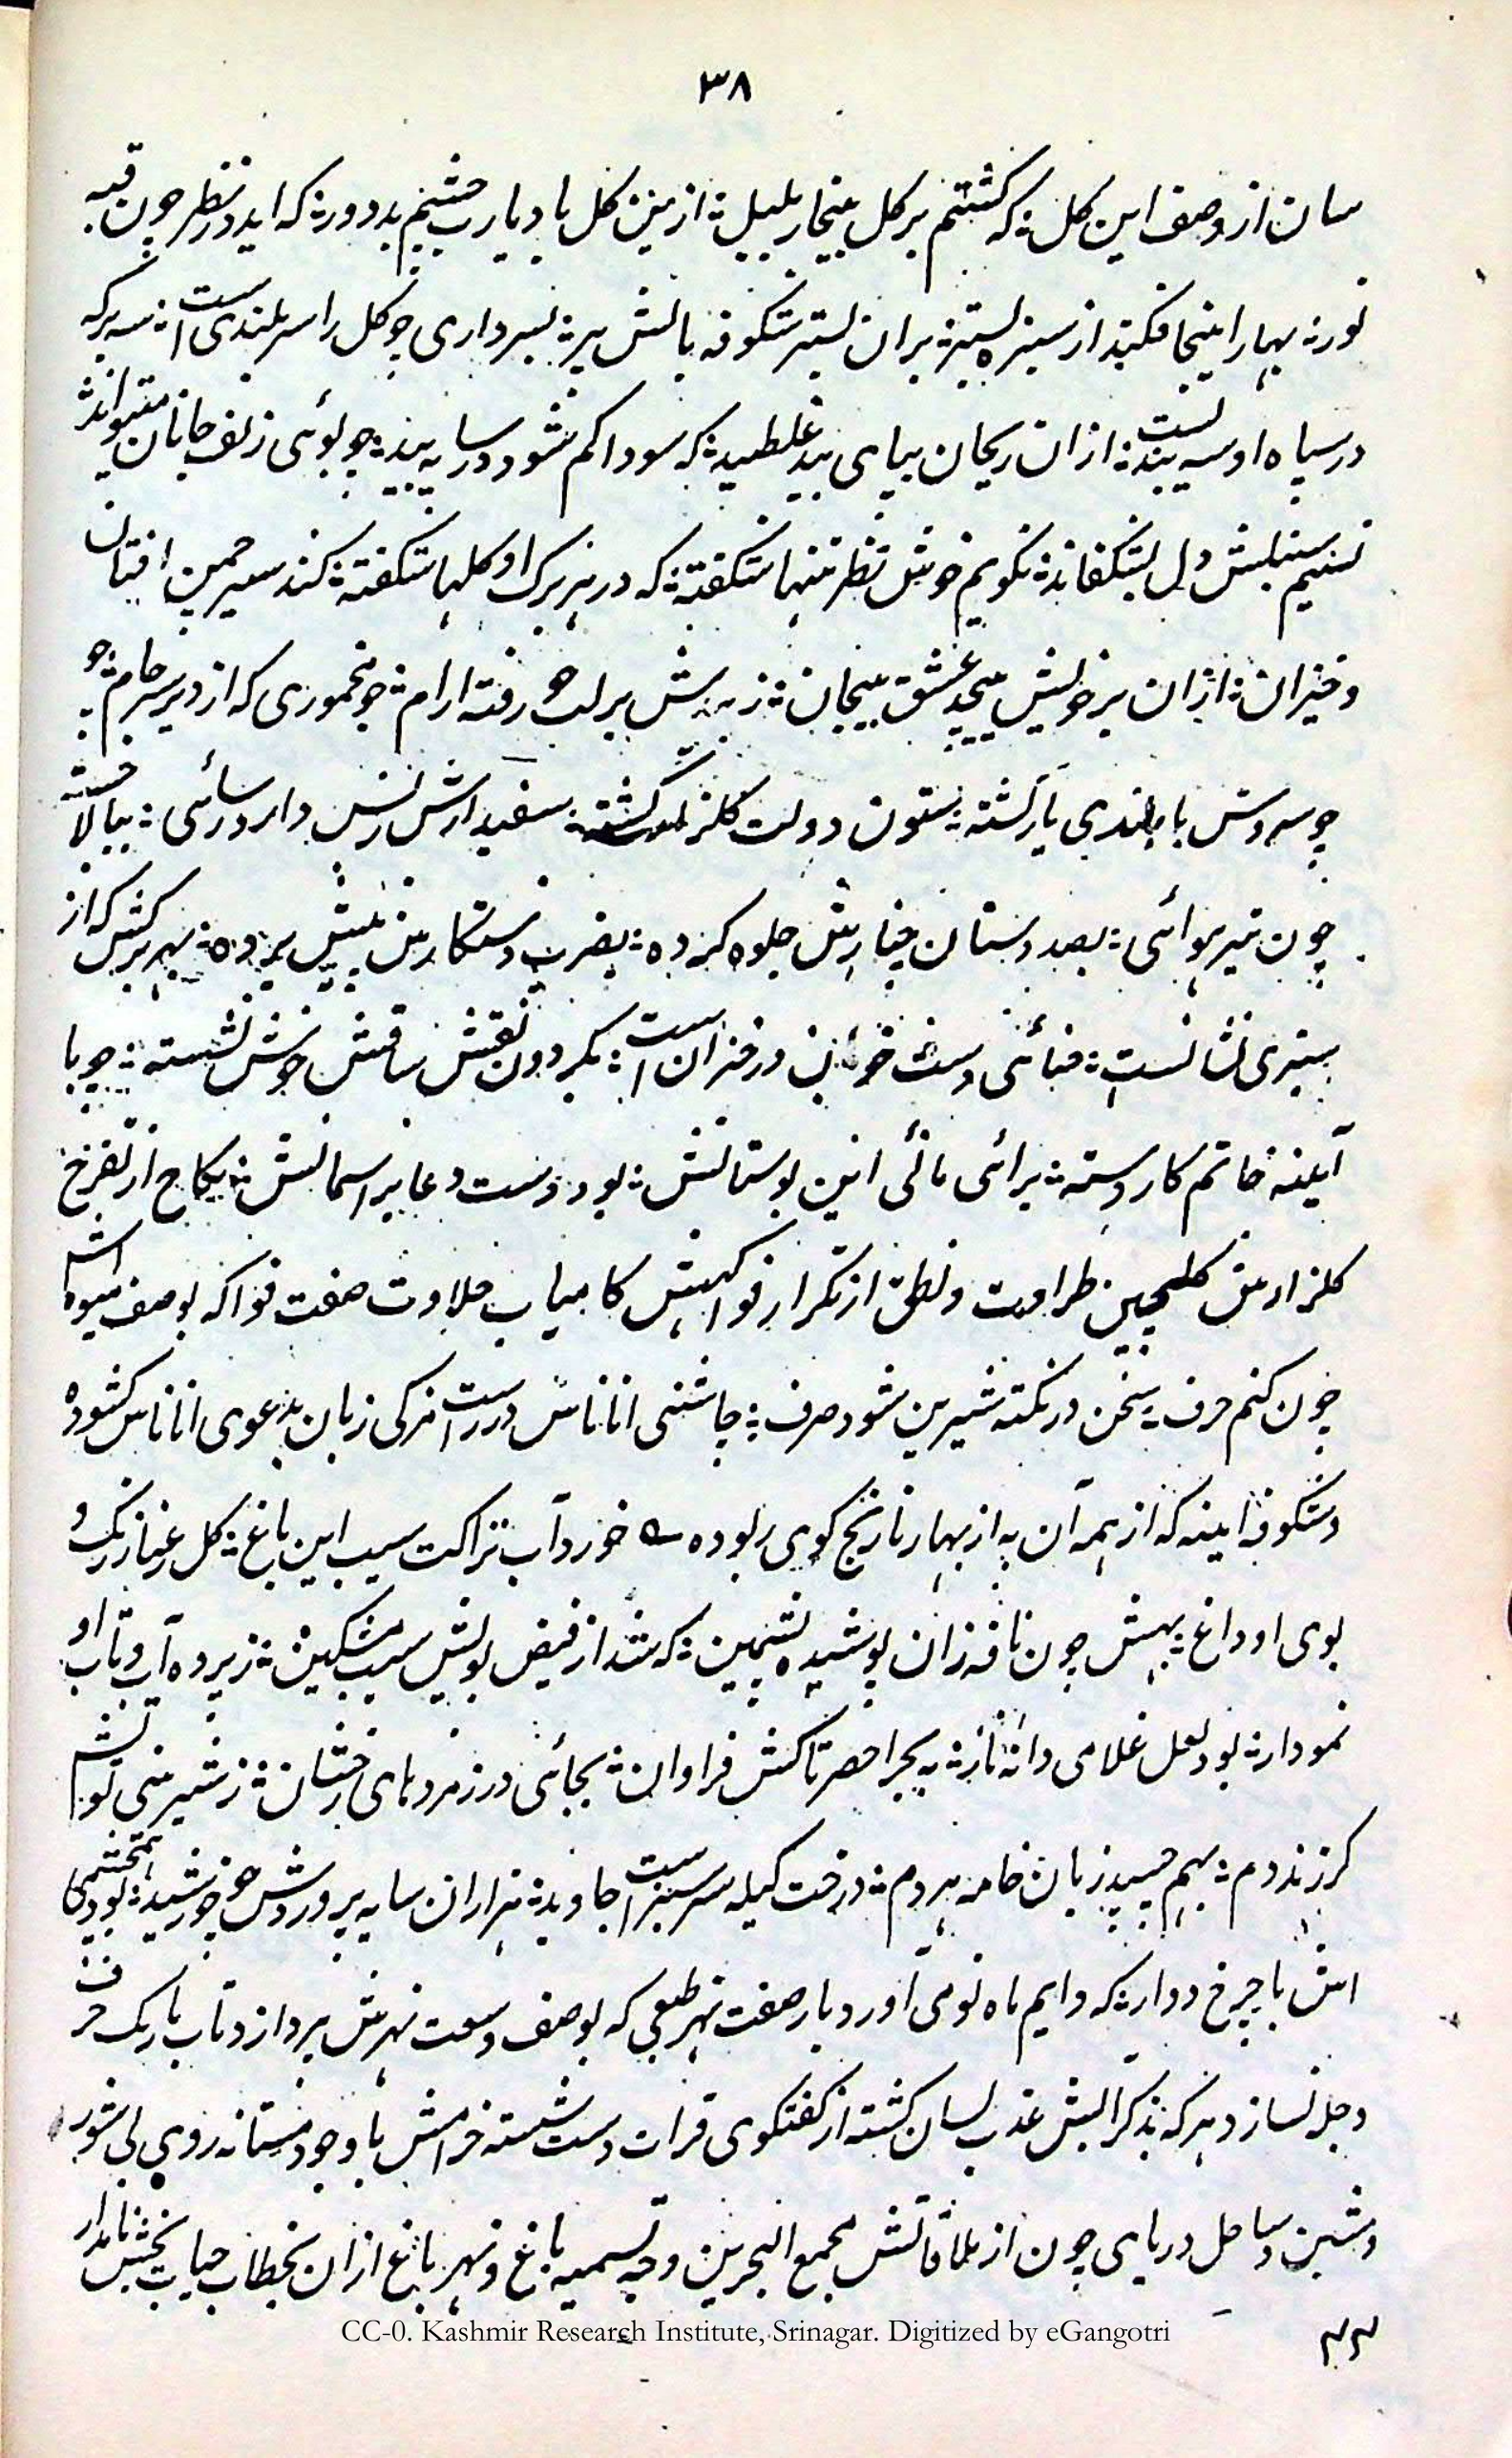 ۳۸
سان از وصف این کل؛ که کشتم بر کل بلبل؛ ازین کل باد یارب چشم بد دور؛ که اید در نظر چون قبه
نور؛ بهار اینجا فکند از سبزه بستر؛ بران بستر شکوفه بالش پر؛ بسرداری چو کل را سر بلندی است؛ سه برکه
در سپاه او سه بندلیست؛ ازان ریحان بپای بید غلطید؛ که سودا کم شود در سایه بید؛ چو بوئی زلف جانان میتواند
نسیم سنبلش دل بشکفاند؛ نکویم خوش نظر تنها شکفته؛ که در هر برک او کلها شکفته؛ کند سیر چمن افتان
و خیزان؛ ازان بر خویش پیچد عشق پیچان؛ ز برلب جو رفته ارام؛ چو مخموری که از وی پر سر جام؛ جو
چو سروش با بلندی یار کشته؛ ستون دولت کلزار کشته؛ سفیدارش دارد رسائی؛ ببالا جسته
چون تیر هوائی؛ بصد دستان چنارش جلوه کرده؛ بضرب دست کار از پیش برده؛ بهر برکش که از
سبزی نشانست؛ حنائی دست در خزان است؛ بکردون نقش ساقش خوش نشسته؛ چو با
آیینه خاتم کار دسته؛ برائی مائی این بوستانش؛ بود دست دعا بر اسمانش؛ نکاه از تفرج
کلزارش کلچین طراوت و نطق از تکرار فواکهش کامیاب حلاوت صفت فواکه بوصف میوه اش
چون کنم حرف؛ سخن در نکته شیرین شود صرف؛ چاشنی اناناس درست امزکی زبان بدعوی اناناس کشوده
و شکوفه آیینه که از همه آن به از بهار نارنج کوی ربوده ؎ خورد آب نزاکت سیب این باغ؛ کل رعنا ز رنک و
بوی او داغ؛ بهش چون نافه زان پوشیده پشمین؛ که شد از فیض بویش سیب مشکین؛ ز پرده آب و تاب او
نمودار؛ بود لعل غلامی دانه نار؛ به بحر اخضر تاکش فراوان؛ بجائی در زمردهای رخشان؛ ز شیرینی توتش
کر زند دم؛ بهم چسپد زبان خامه هر دم؛ درخت کیله سرسبز است جاوید؛ هزاران سایه پروردش چو خورشید؛ بود همچشمی
اش با چرخ دوار؛ که دایم ماه نو می آورد بار صفت نهر طبعی که بوصف وسعت نهرش پردازد تاب باریک حرف
دجله نسازد و هر که بذکر آبش عذب لسان کشته از کفتکوی فرات دست شسته خرامش با وجود مستانه روی بی شور
و شین و ساحل دریای جون از ملاقاتش مجمع البحرین وجه تسمیه باغ و نهر باغ ازان بخطاب حیات بخش نامدار
CC-0. Kashmir Research Institute, Srinagar. Digitized by eGangotri